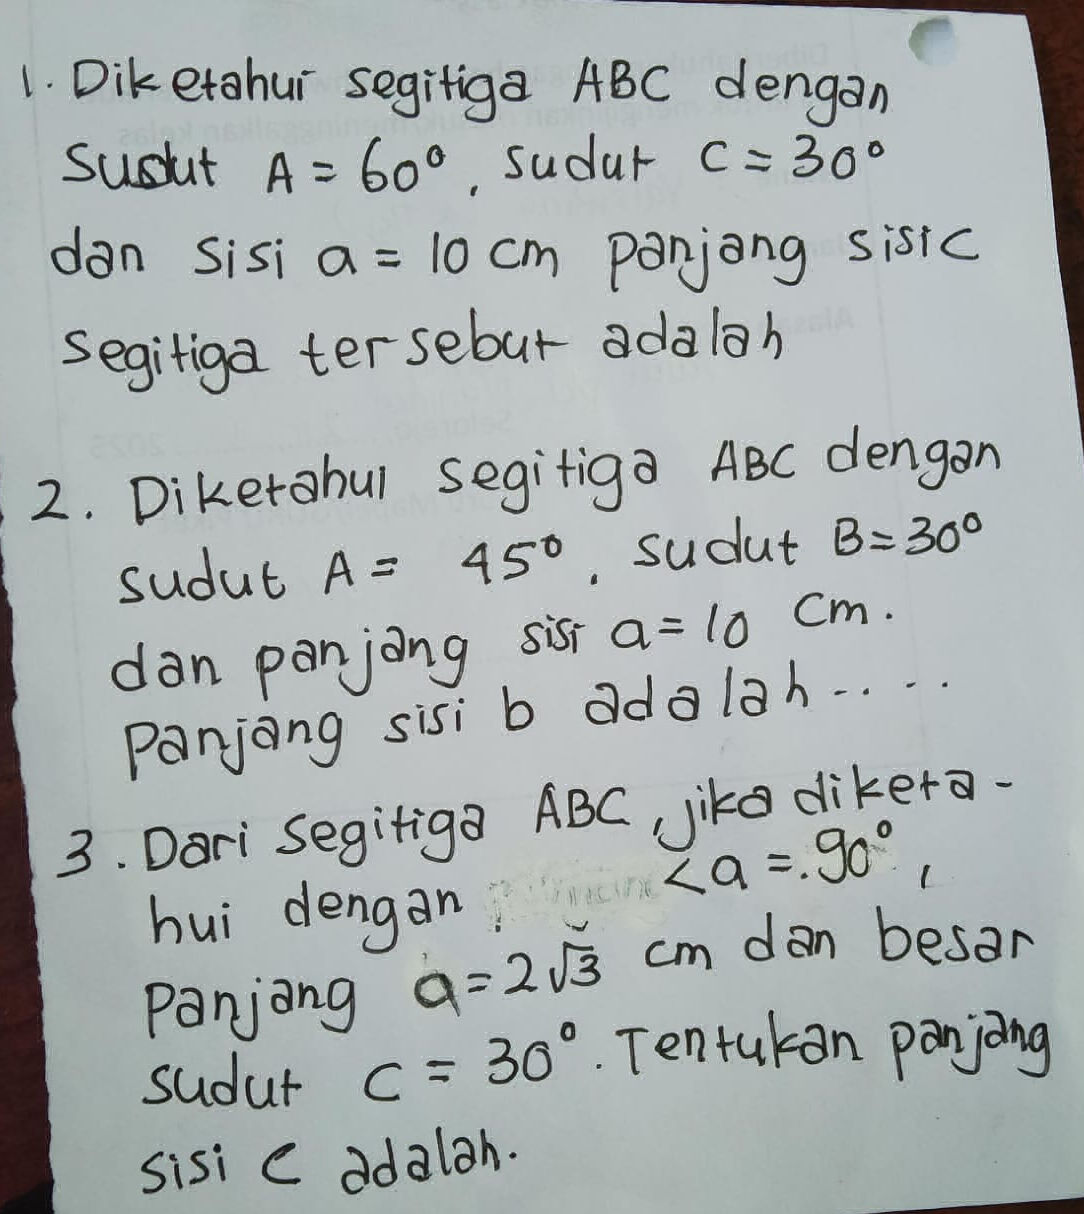 1. Diketahui segitiga ABC dengan
Sudut A = 60°, sudut C = 30°
dan sisi a = 10 cm panjang sisi c
segitiga tersebut adalah
2. Diketahui segitiga ABC dengan
sudut A = 45°, sudut B = 30°
dan panjang sisi a = 10 cm.
Panjang sisi b adalah ....
3. Dari segitiga ABC, jika diketa-
hui dengan <a = . 90°,
Panjang a = 2√3 cm dan besar
sudut C = 30°. Tentukan panjang
sisi c adalah.